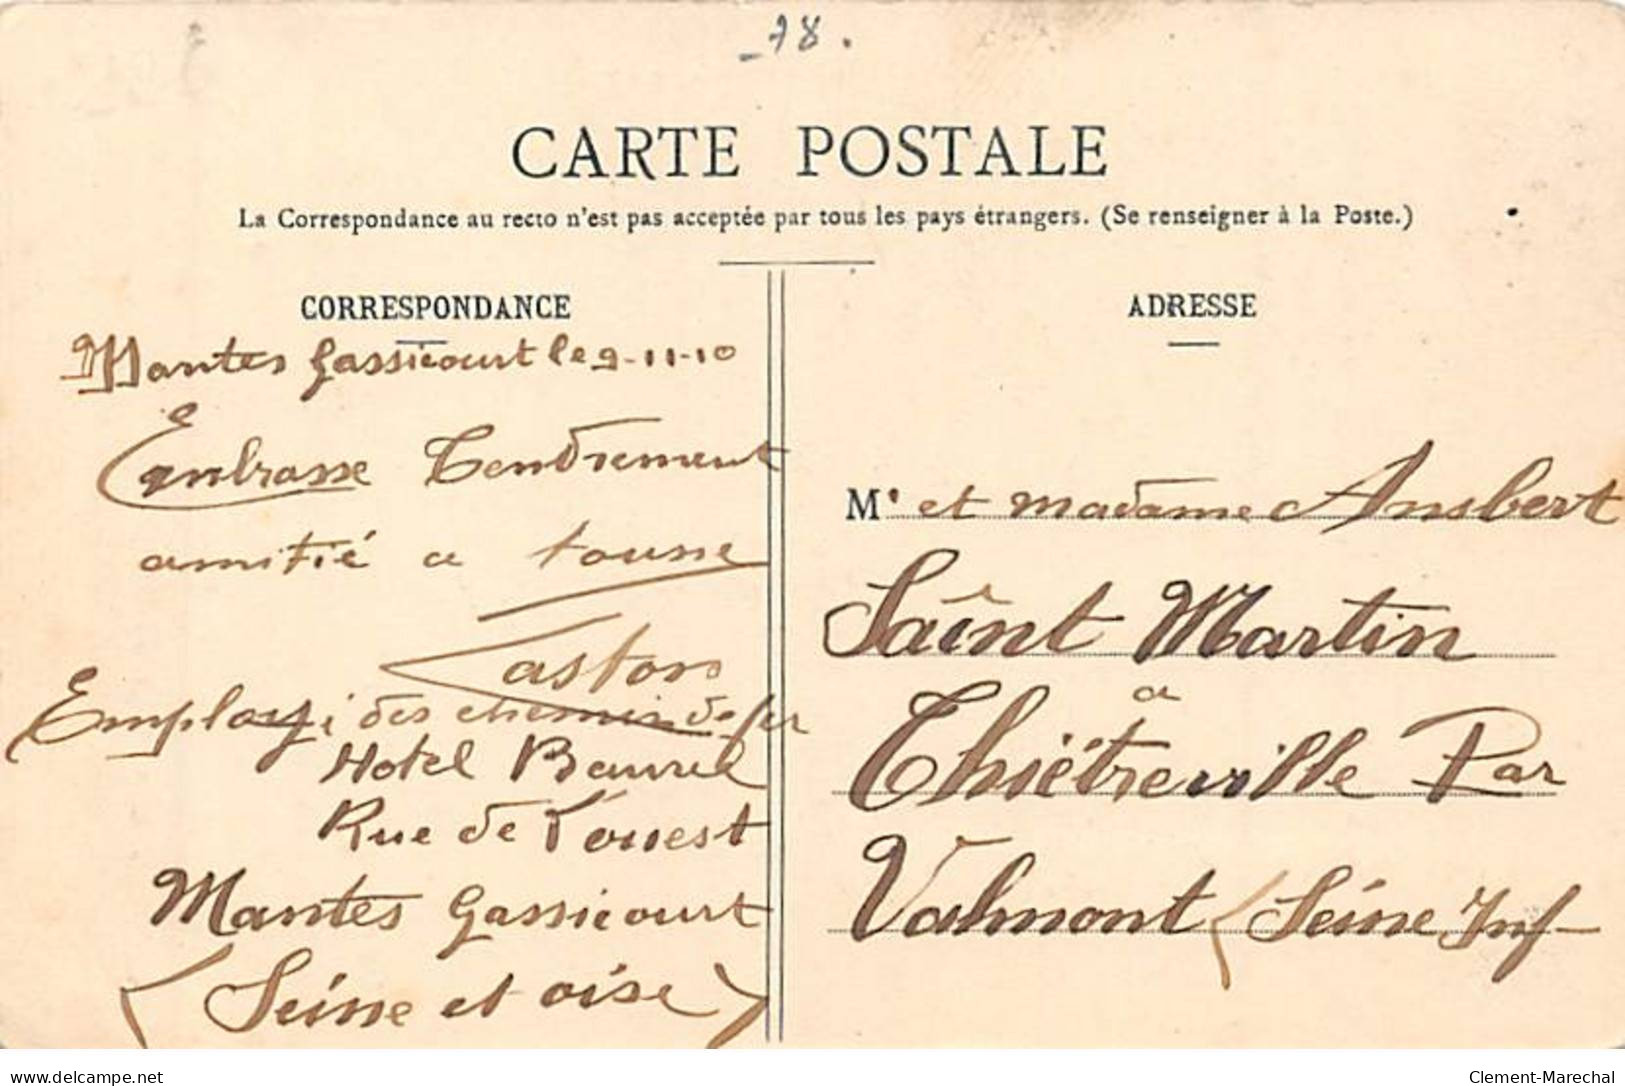 - 78.
CARTE POSTALE
La Correspondance au recto n'est pas acceptée par tous les pays étrangers. (Se renseigner à la Poste.)
CORRESPONDANCE
Mantes Gassicourt le 9-11-10
Embrasse Tendrement
amitié a tousse
Gaston
Employi des chemin de fer
Hotel
Rue de l'ouest
Mantes Gassicourt
(Seine et oise)
ADRESSE
Mr et madame Ansbert
Saint Martin
a
Thiétreville Par
Valmont (Seine Inf-
www.delcampe.net
Clement-Marechal